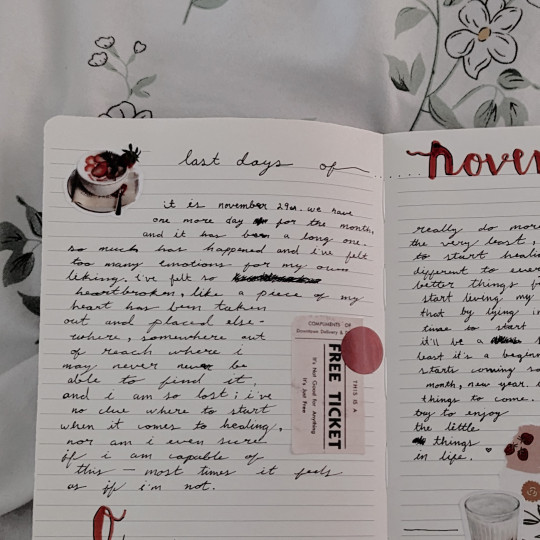 last days of
it is november 29th. we have
one more day for the month,
and it has been a long one.
so much has happened and i've felt
too many emotions for my own
liking. i've felt so
heartbroken, like a piece of my
heart has been taken
out and placed else-
where, somewhere out
of reach where i
may never be
able to find it.
and i am so lost; i've
no clue where to start
when it comes to healing,
nor am i even sure
if i am capable of
this — most times it feels
as if i'm not.
COMPLIMENTS OF
Downtown Delivery &
THIS IS A
FREE TICKET
It's Not Good for Anything
It's Just Free
novem
really do more
the very least,
to start heali
different to ever
better things f
start loving my
that by lying in
time to start
it'll be a
least it's a beginn
starts coming so
month, new year.
things to come.
try to enjoy
the little
things
in life.